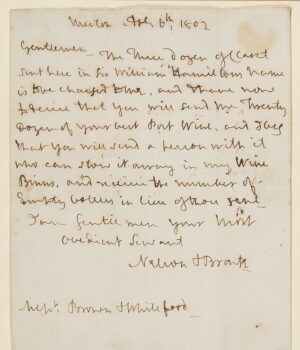 Merton Apl 6th, 1802
Gentlemen — The Three Dozen of Claret
sent here in Sir William Hamiltons Name
is to be charged to me, and I have now
to desire that you will send me Twenty
Dozen of your best Port Wine, and I beg
that you will send a person with it
who can stow it away in my Wine
Binns, and receive the number of
Empty bottles in lieu of those sent
I am Gentlemen your most
obedient Servant
Nelson & Bronte
Messrs. Brown & Whiteford